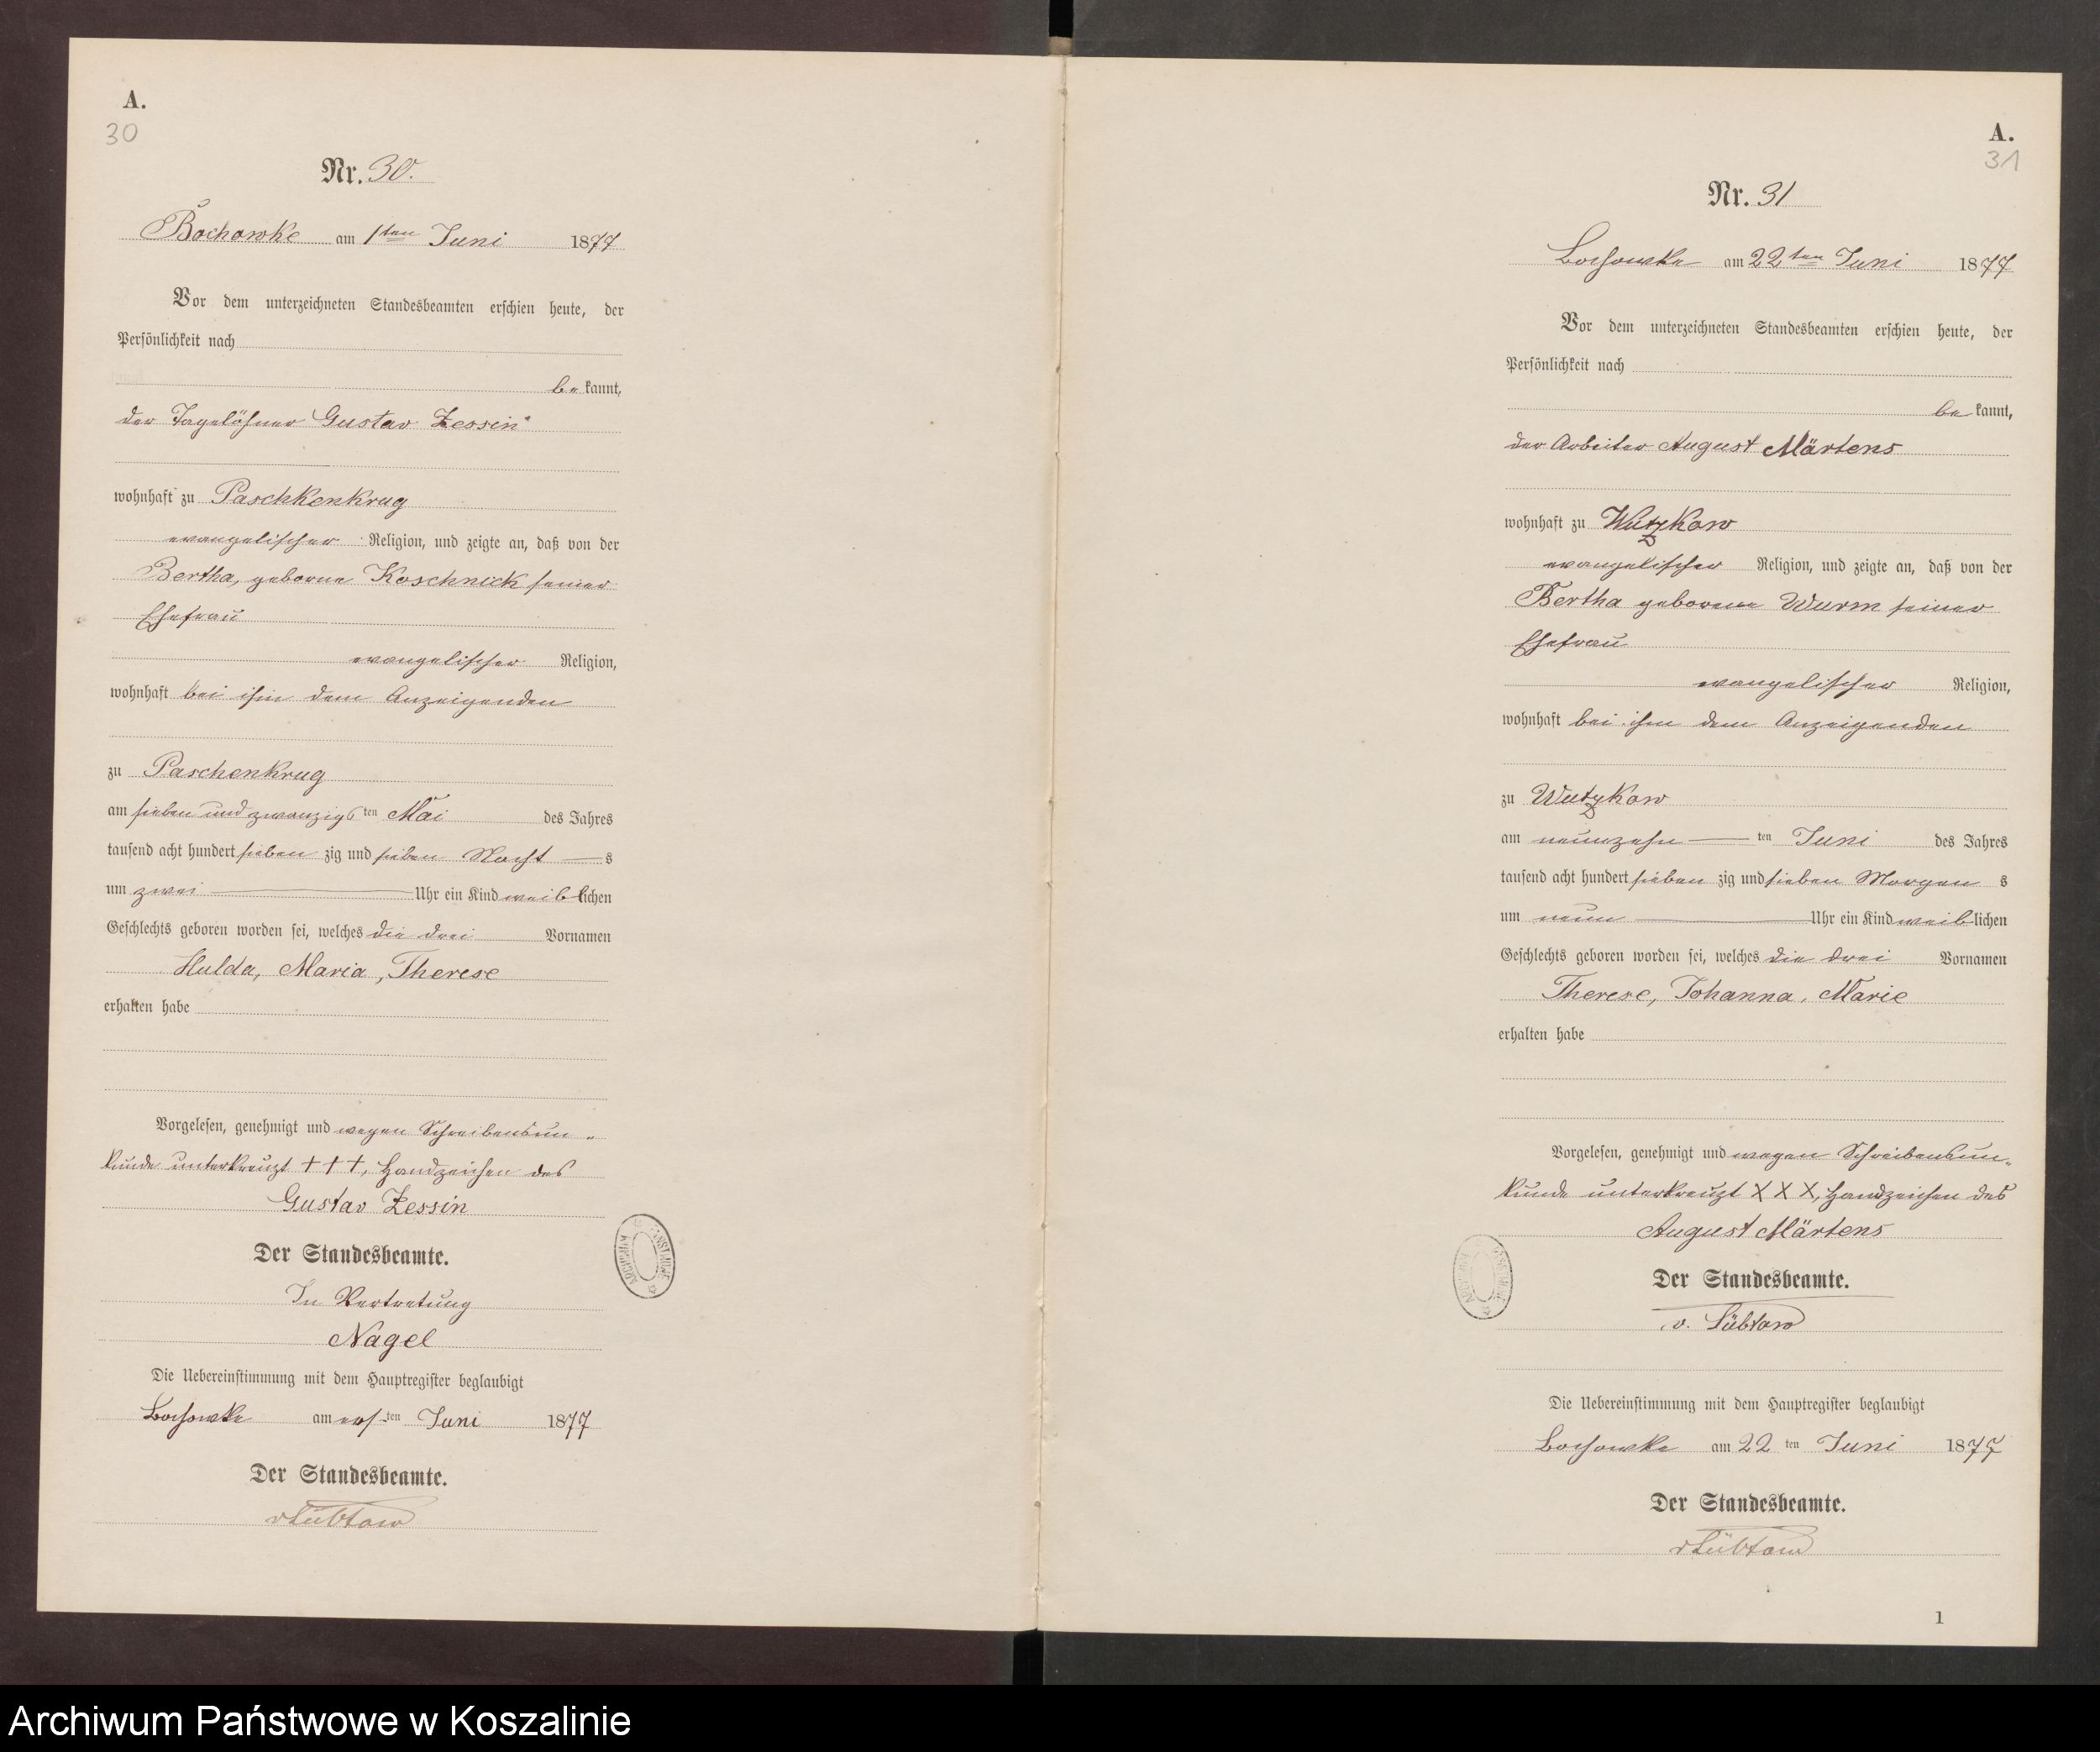 A.
30
Nr. 30.
Bochowke am 1ten Juni 1877
Vor dem unterzeichneten Standesbeamten erschien heute, der
Persönlichkeit nach
be kannt,
der Tagelöhner Gustav Zessin
wohnhaft zu Paschkenkrug
evangelischer Religion, und zeigte an, daß von der
Bertha, geborne Koschnick seiner
Ehefrau
evangelischer Religion,
wohnhaft bei ihm dem Anzeigenden
zu Paschenkrug
am sieben und zwanzigs ten Mai des Jahres
tausend acht hundert sieben zig und sieben Nacht s
um zwei Uhr ein Kind weib lichen
Geschlechts geboren worden sei, welches die drei Vornamen
Hulda, Maria, Therese
erhalten habe
Vorgelesen, genehmigt und wegen Schreibensun-
kunde unterkreuzt +++, Handzeichen des
Gustav Zessin
Der Standesbeamte.
In Vertretung
Nagel
Die Uebereinstimmung mit dem Hauptregister beglaubigt
Bochowke am ers ten Juni 1877
Der Standesbeamte.
vLübtow
A.
31
Nr. 31
Bochowke am 22ten Juni 1877
Vor dem unterzeichneten Standesbeamten erschien heute, der
Persönlichkeit nach
be kannt,
der Arbeiter August Märtens
wohnhaft zu Wutzkow
evangelischer Religion, und zeigte an, daß von der
Bertha geborene Wurm seiner
Ehefrau
evangelischer Religion,
wohnhaft bei ihm dem Anzeigenden
zu Wutzkow
am neunzehn ten Juni des Jahres
tausend acht hundert sieben zig und sieben Morgen s
um neun Uhr ein Kind weib lichen
Geschlechts geboren worden sei, welches die drei Vornamen
Therese, Johanna, Marie
erhalten habe
Vorgelesen, genehmigt und wegen Schreibensun-
kunde unterkreuzt XXX, Handzeichen des
August Märtens
Der Standesbeamte.
v. Lübtow
Die Uebereinstimmung mit dem Hauptregister beglaubigt
Bochowke am 22 ten Juni 1877
Der Standesbeamte.
vLübtow
1
Archiwum Państwowe w Koszalinie